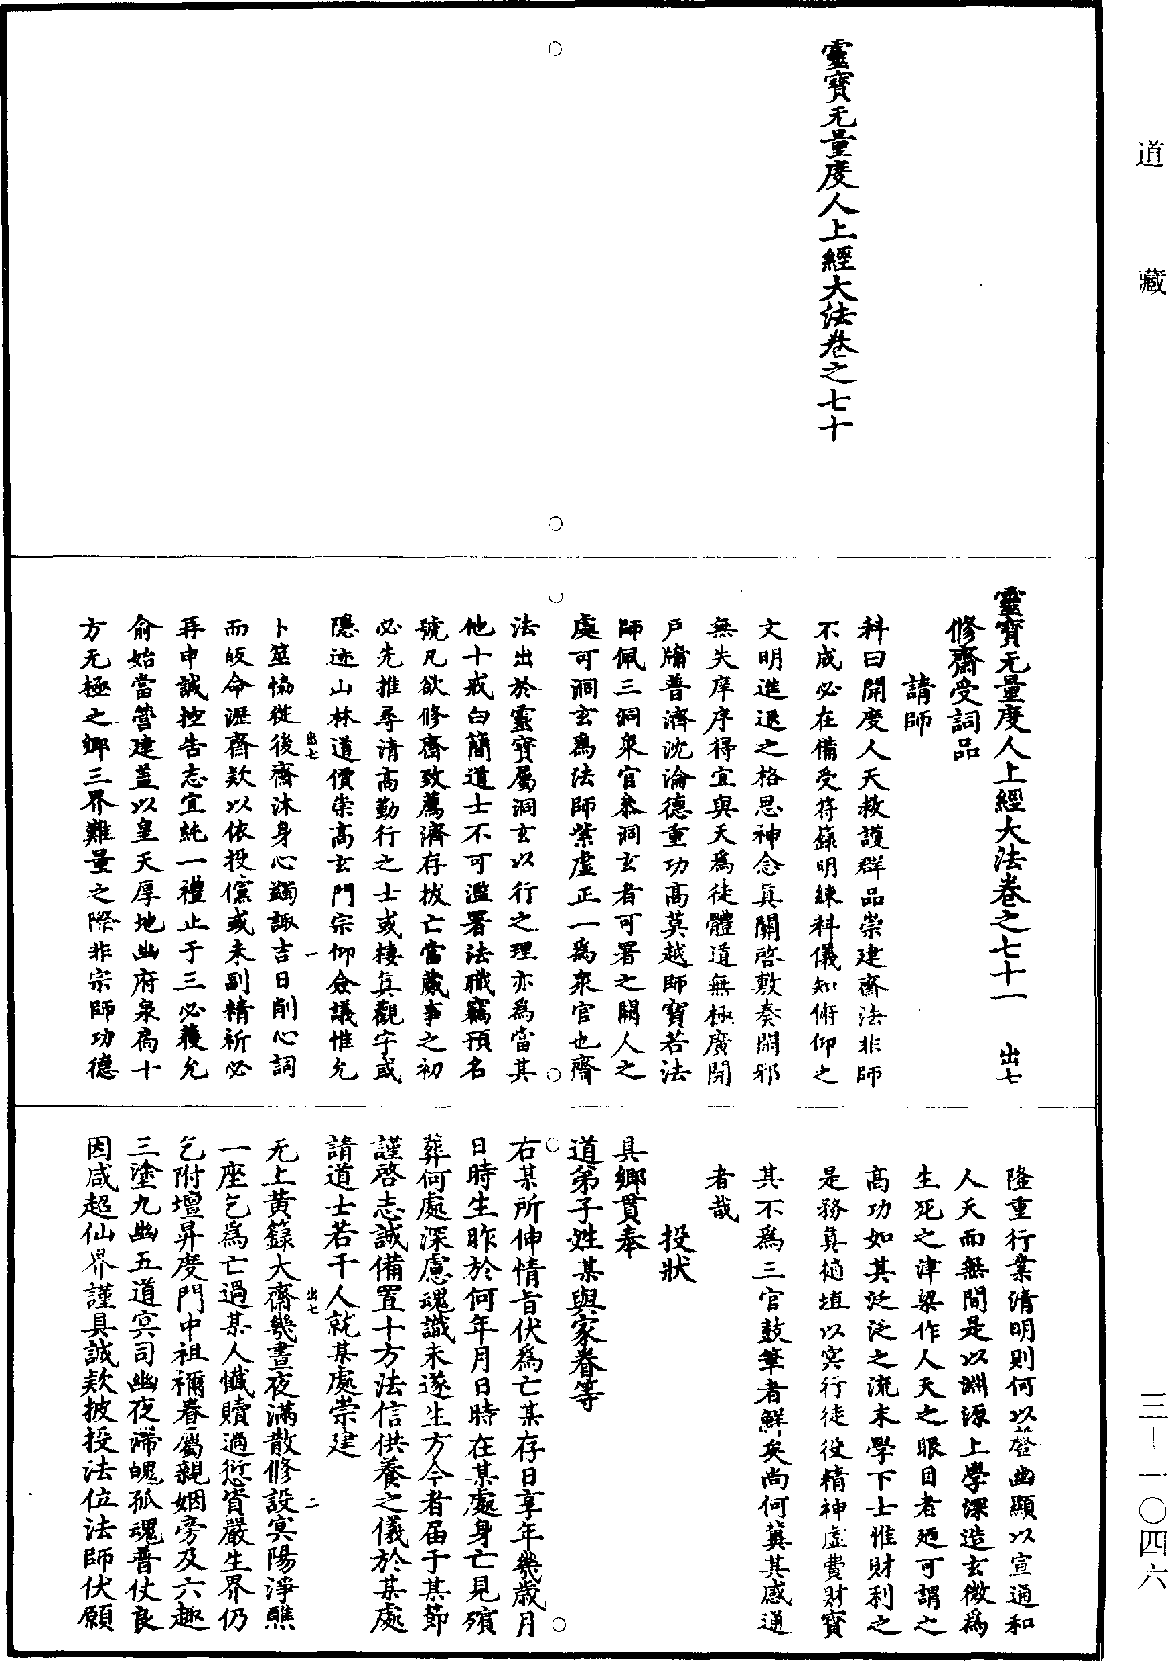 道藏
靈寶无量度人上經大法卷之七十
靈寶无量度人上經大法卷之七十一 出七
修齋受詞品
請師
科曰開度人天救護群品崇建齋法非師
不成必在備受符籙明練科儀知俯仰之
文明進退之格思神念真關啓敷奏閑邪
無失庠序得宜與天為徒體道無極廣開
戶牖普濟沈淪德重功高莫越師寶若法
師佩三洞眾官叅洞玄者可署之關人之
處可洞玄為法師紫虛正一為眾官也齋
法出於靈寶屬洞玄以行之理亦為當其
他十戒白簡道士不可濫署法職竊預名
號凡欲修齋致薦濟存拔亡當蕆事之初
必先推尋清高勤行之士或棲真觀宇或
隱迹山林道價崇高玄門宗仰僉議惟允
卜筮恊從後齋沐身心蠲諏吉日削心詞
出七 一
而皈命瀝齋欵以依投儻或未副精祈必
再申誠控告志宜純一禮止于三必獲允
俞始當營建蓋以皇天厚地幽府泉扃十
方无極之鄉三界難量之際非宗師功德
隆重行業清明則何以啓幽顯以宣通和
人天而無間是以淵源上學深造玄微為
生死之津梁作人天之眼目者廼可謂之
高功如其泛泛之流末學下士惟財利之
是務真擿埴以冥行徒役精神虛費財寶
其不為三官鼓筆者鮮矣尚何冀其感通
者哉
投狀
具鄉貫奉
道弟子姓某與家眷等
右某所伸情旨伏為亡某存日享年幾歲月
日時生昨於何年月日時在某處身亡見殯
葬何處深慮魂識未遂生方今者屆于某節
謹啓志誠備置十方法信供養之儀於某處
請道士若干人就某處崇建
无上黃籙大齋幾晝夜滿散修設冥陽淨醮
出七 二
一座乞為亡過某人懺贖過愆資嚴生界仍
乞附壇昇度門中祖禰眷屬親姻旁及六趣
三塗九幽五道冥司幽夜滯魄孤魂普仗良
因咸超仙界謹具誠欵披投法位法師伏願
三—一〇四六